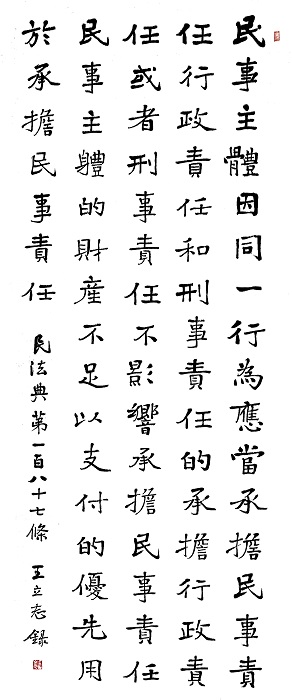 民事主體因同一行為應當承擔民事責
任行政責任和刑事責任的承擔行政責
任或者刑事責任不影響承擔民事責任
民事主軆的財產不足以支付的優先用
於承擔民事責任
民法典第一百八十七條 王立志錄